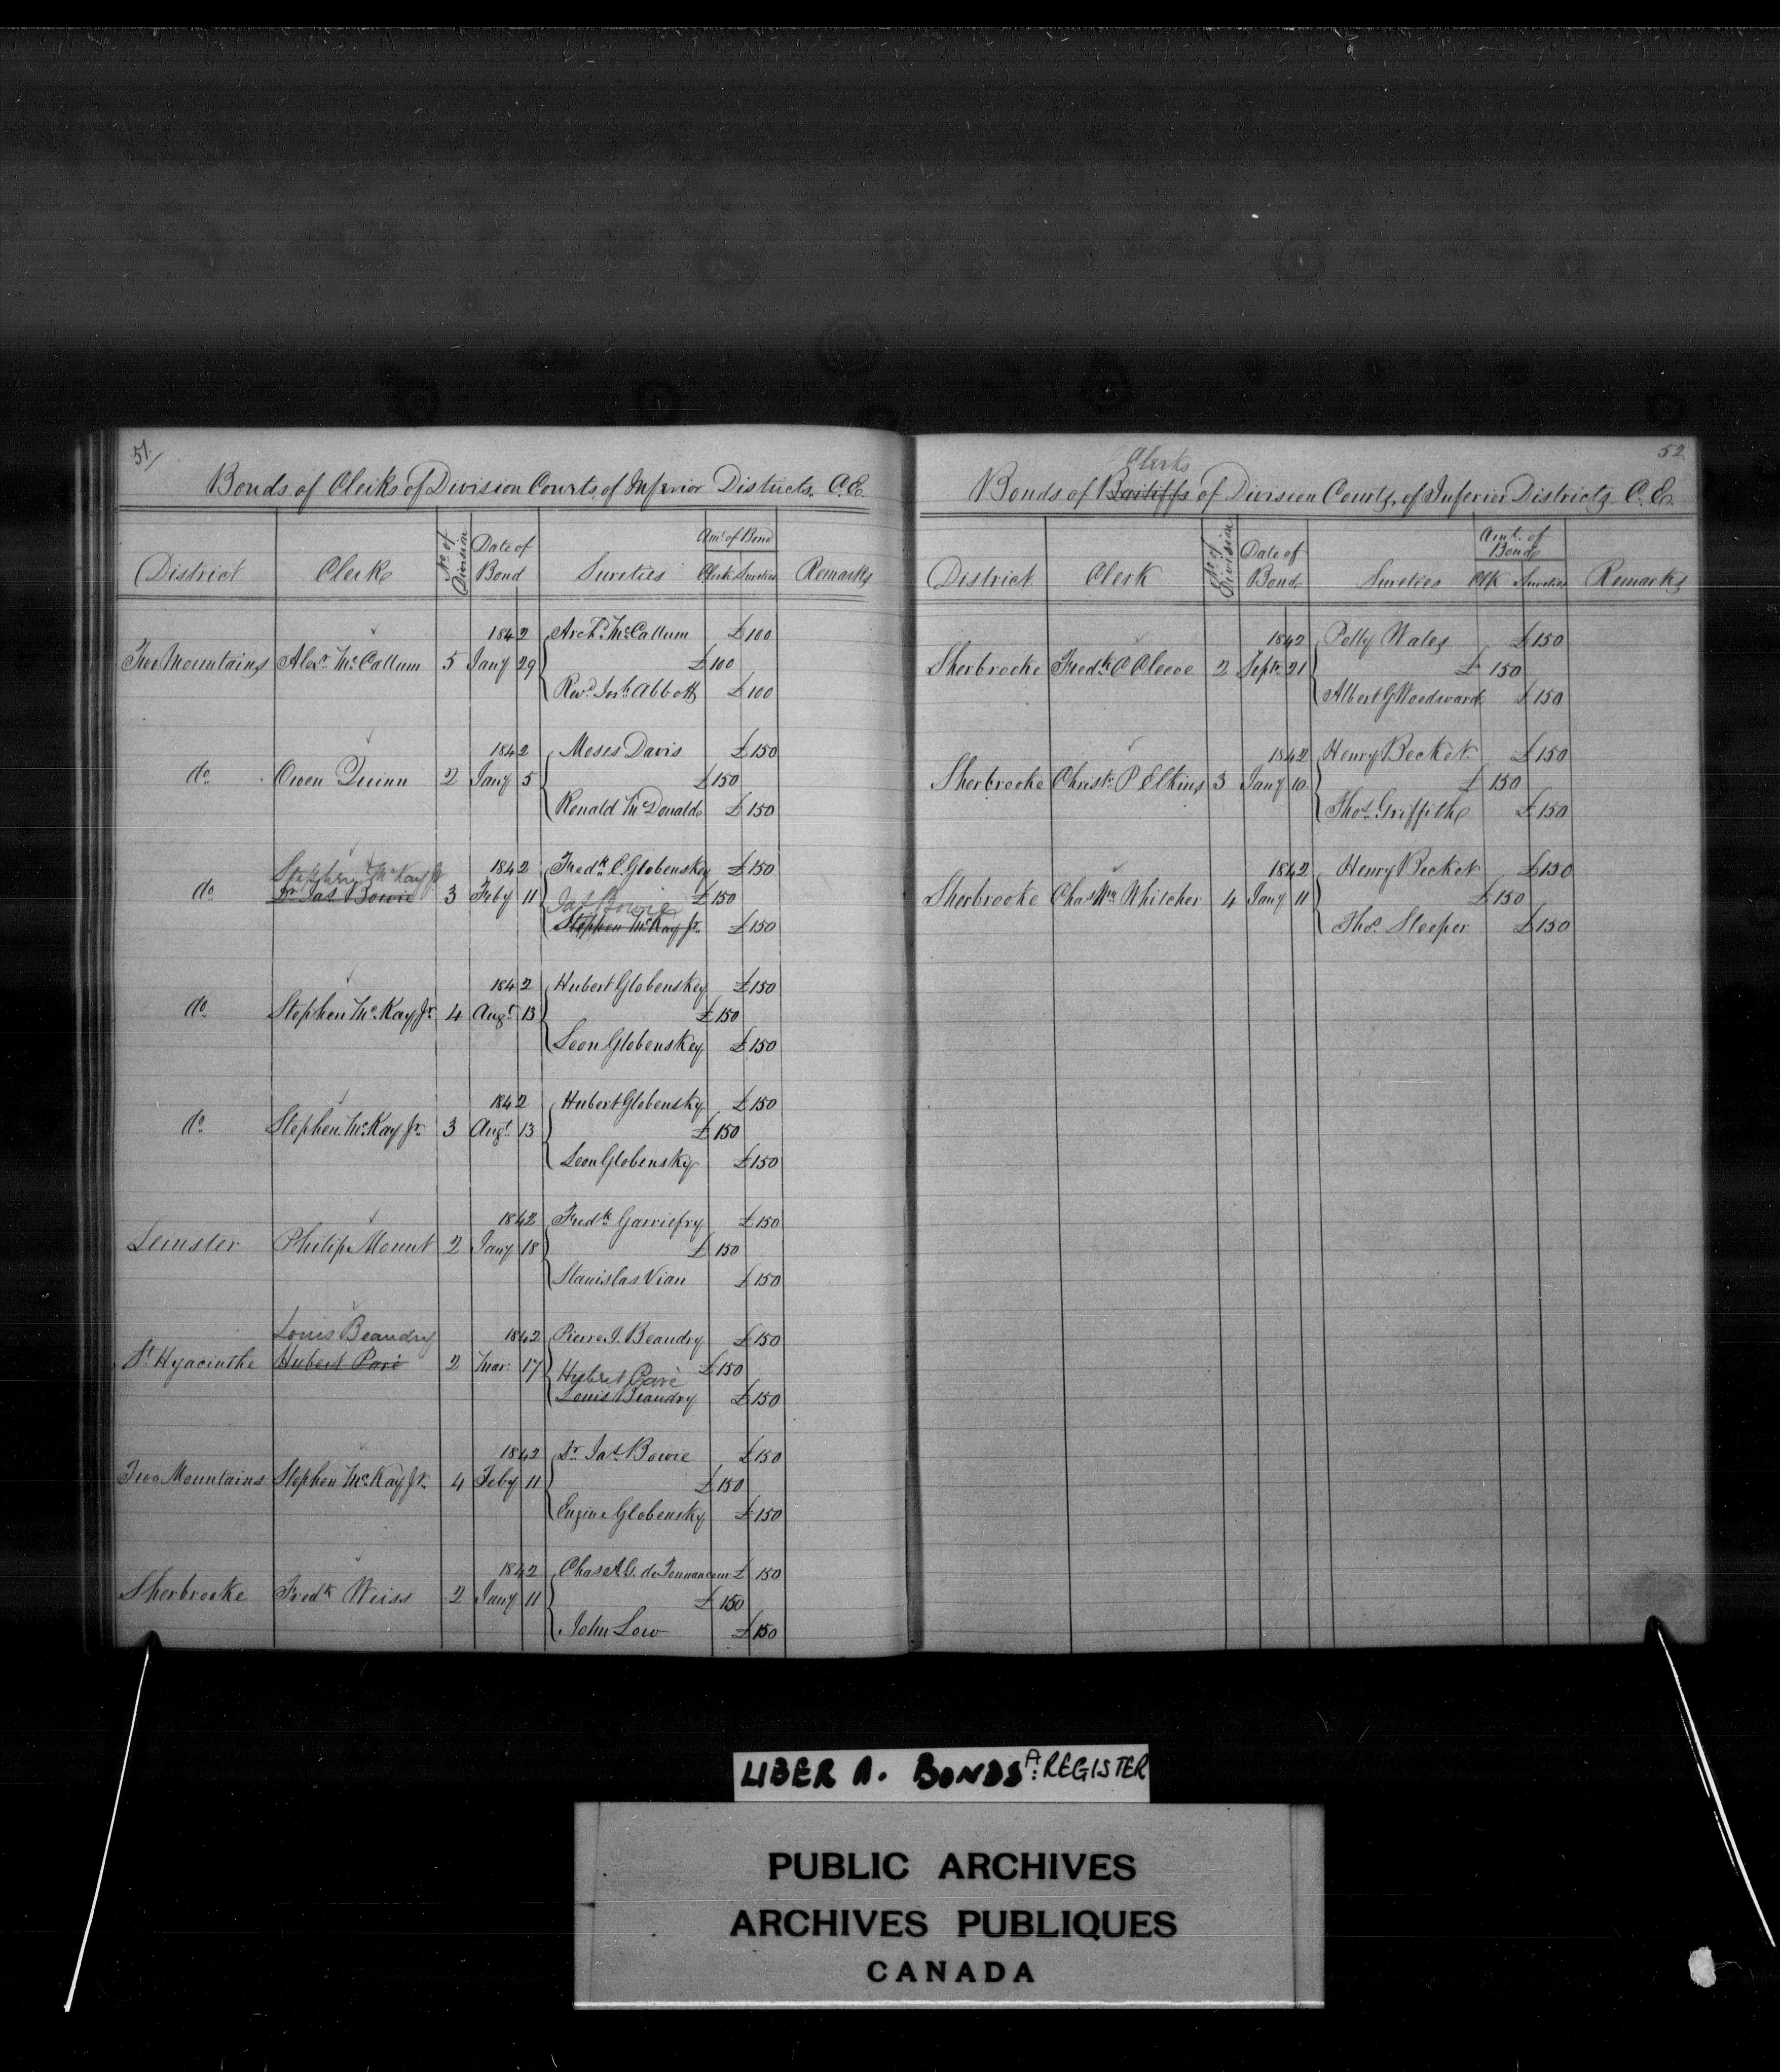 51/
Bonds of Clerks of Division Courts, of Inferior Districts. C.E.
District Clerk No. of Division Date of Bond Sureties Amt. of Bond Clerk Sureties Remarks
1842 Archd. McCallum £100
Two Mountains Alexr. McCallum 5 Jany 29 £100
Revd. Josh. Abbott £100
1842 Moses Davis £150
do. Owen Quinn 2 Jany 5 £150
Ronald McDonald £150
Stephen McKay Jr 1842 Fredk. E. Globenskey £150
do. Dr. Jas Bowie 3 Feby 11 Jas Bowie £150
Stephen McKay Jr. £150
1842 Hubert Globenskey £150
do. Stephen McKay Jr. 4 Augt. 13 £150
Leon Globenskey £150
1842 Hubert Globensky £150
do. Stephen McKay Jr. 3 Augt. 13 £150
Leon Globensky £150
1842 Fredk. £150
Leinster Philip Mount 2 Jany 18 £150
Stanislas Vian £150
Louis Beaudry 1842 Pierre J. Beaudry £150
St. Hyacinthe Hubert Paré 2 Mar: 17 Hubert Paré £150
Louis Beaudry £150
1842 Dr. Jas. Bowie £150
Two Mountains Stephen McKay Jr. 4 Feby 11 £150
Eugène Globensky £150
1842 Chas A.G. de Tonnancour £150
Sherbrooke Fredk Weiss 2 Jany 11 £150
John Low £150
52
Clerks
Bonds of Bailiffs of Division Courts, of Inferior Districts C.E.
District Clerk No. of Division Date of Bond Sureties Amt. of Bond Clk Sureties Remarks
1842 Polly Wales £150
Sherbrooke Fredk. C Cleeve 2 Septr. 21 £150
Albert G Woodward £150
1842 Henry Becket £150
Sherbrooke Christr. P Elkins 3 Jany 10 £150
Thos. Griffith £150
1842 Henry Becket £150
Sherbrooke Chas Wm Whitcher 4 Jany 11 £150
Thos. Sleeper £150
LIBER A. BONDS A: REGISTER
PUBLIC ARCHIVES
ARCHIVES PUBLIQUES
CANADA